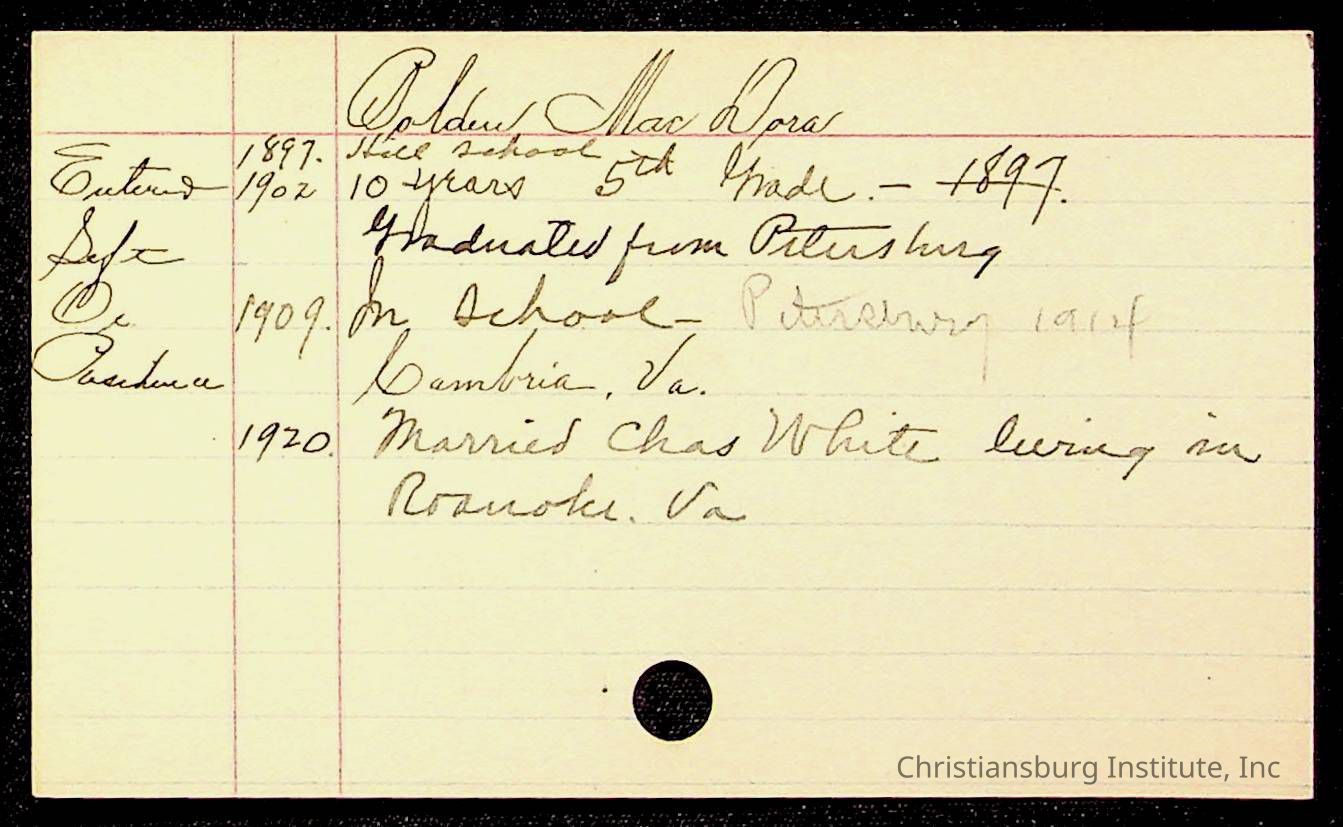 Bolden Mae Dora
1897. Hill School
Entered 1902 10 years 5th Grade. - 1897.
Left Graduated from Petersburg
Oc 1909. In School - Petersburg 1914
Residence Cambria, Va.
1920. Married Chas White living in
Roanoke. Va
Christiansburg Institute, Inc